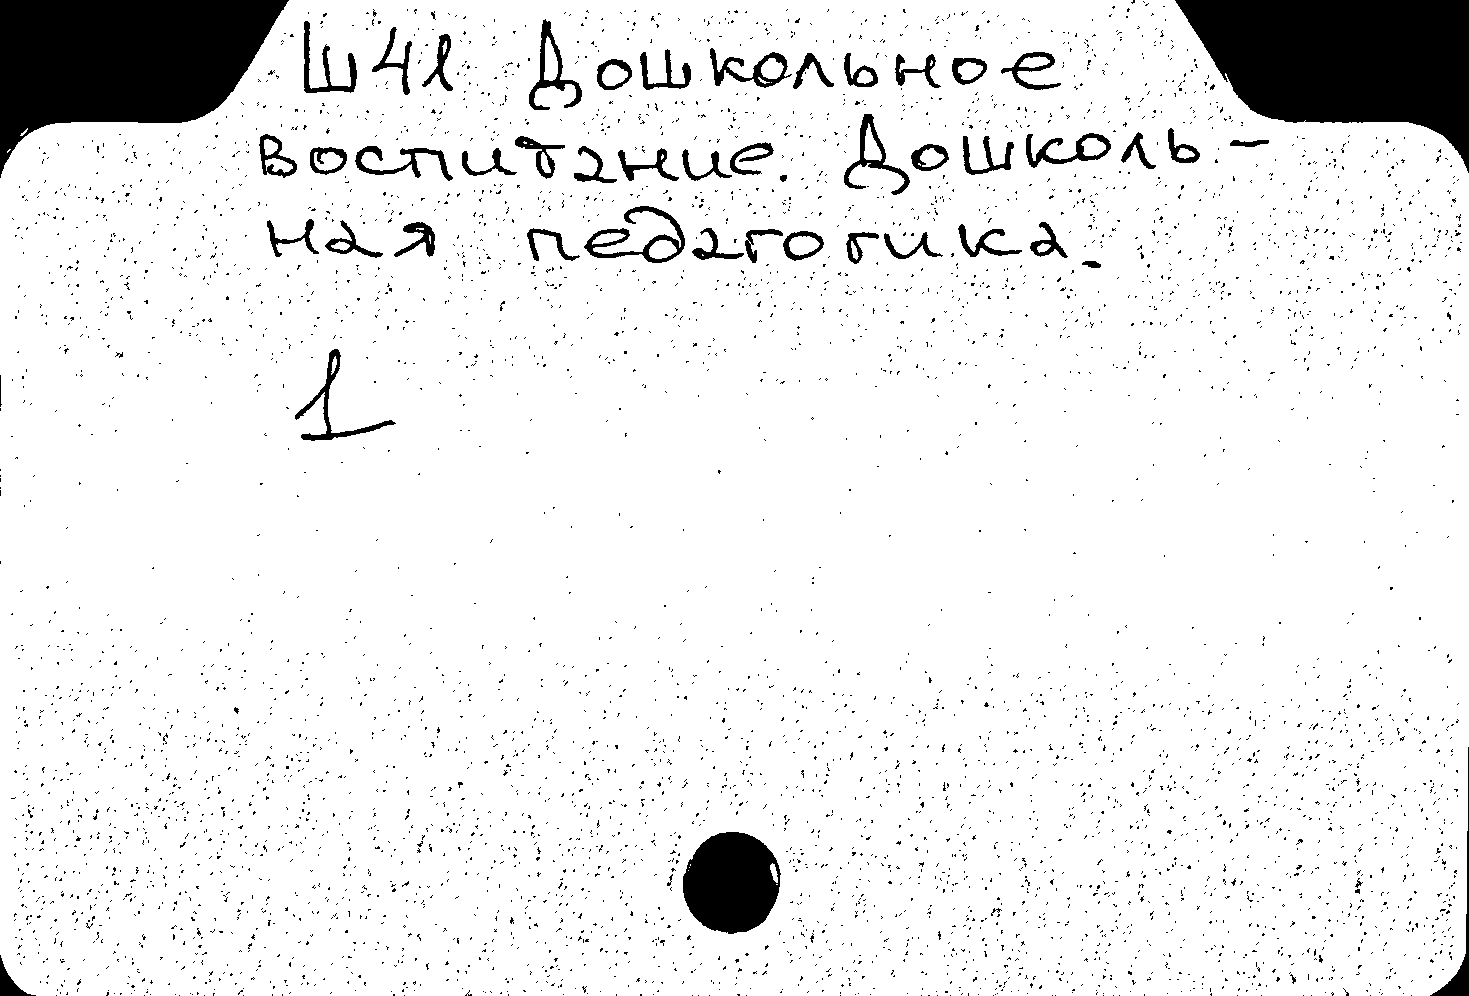 Ш41 Дошкольное
воспитание. Дошколь-
ная педагогика.
1